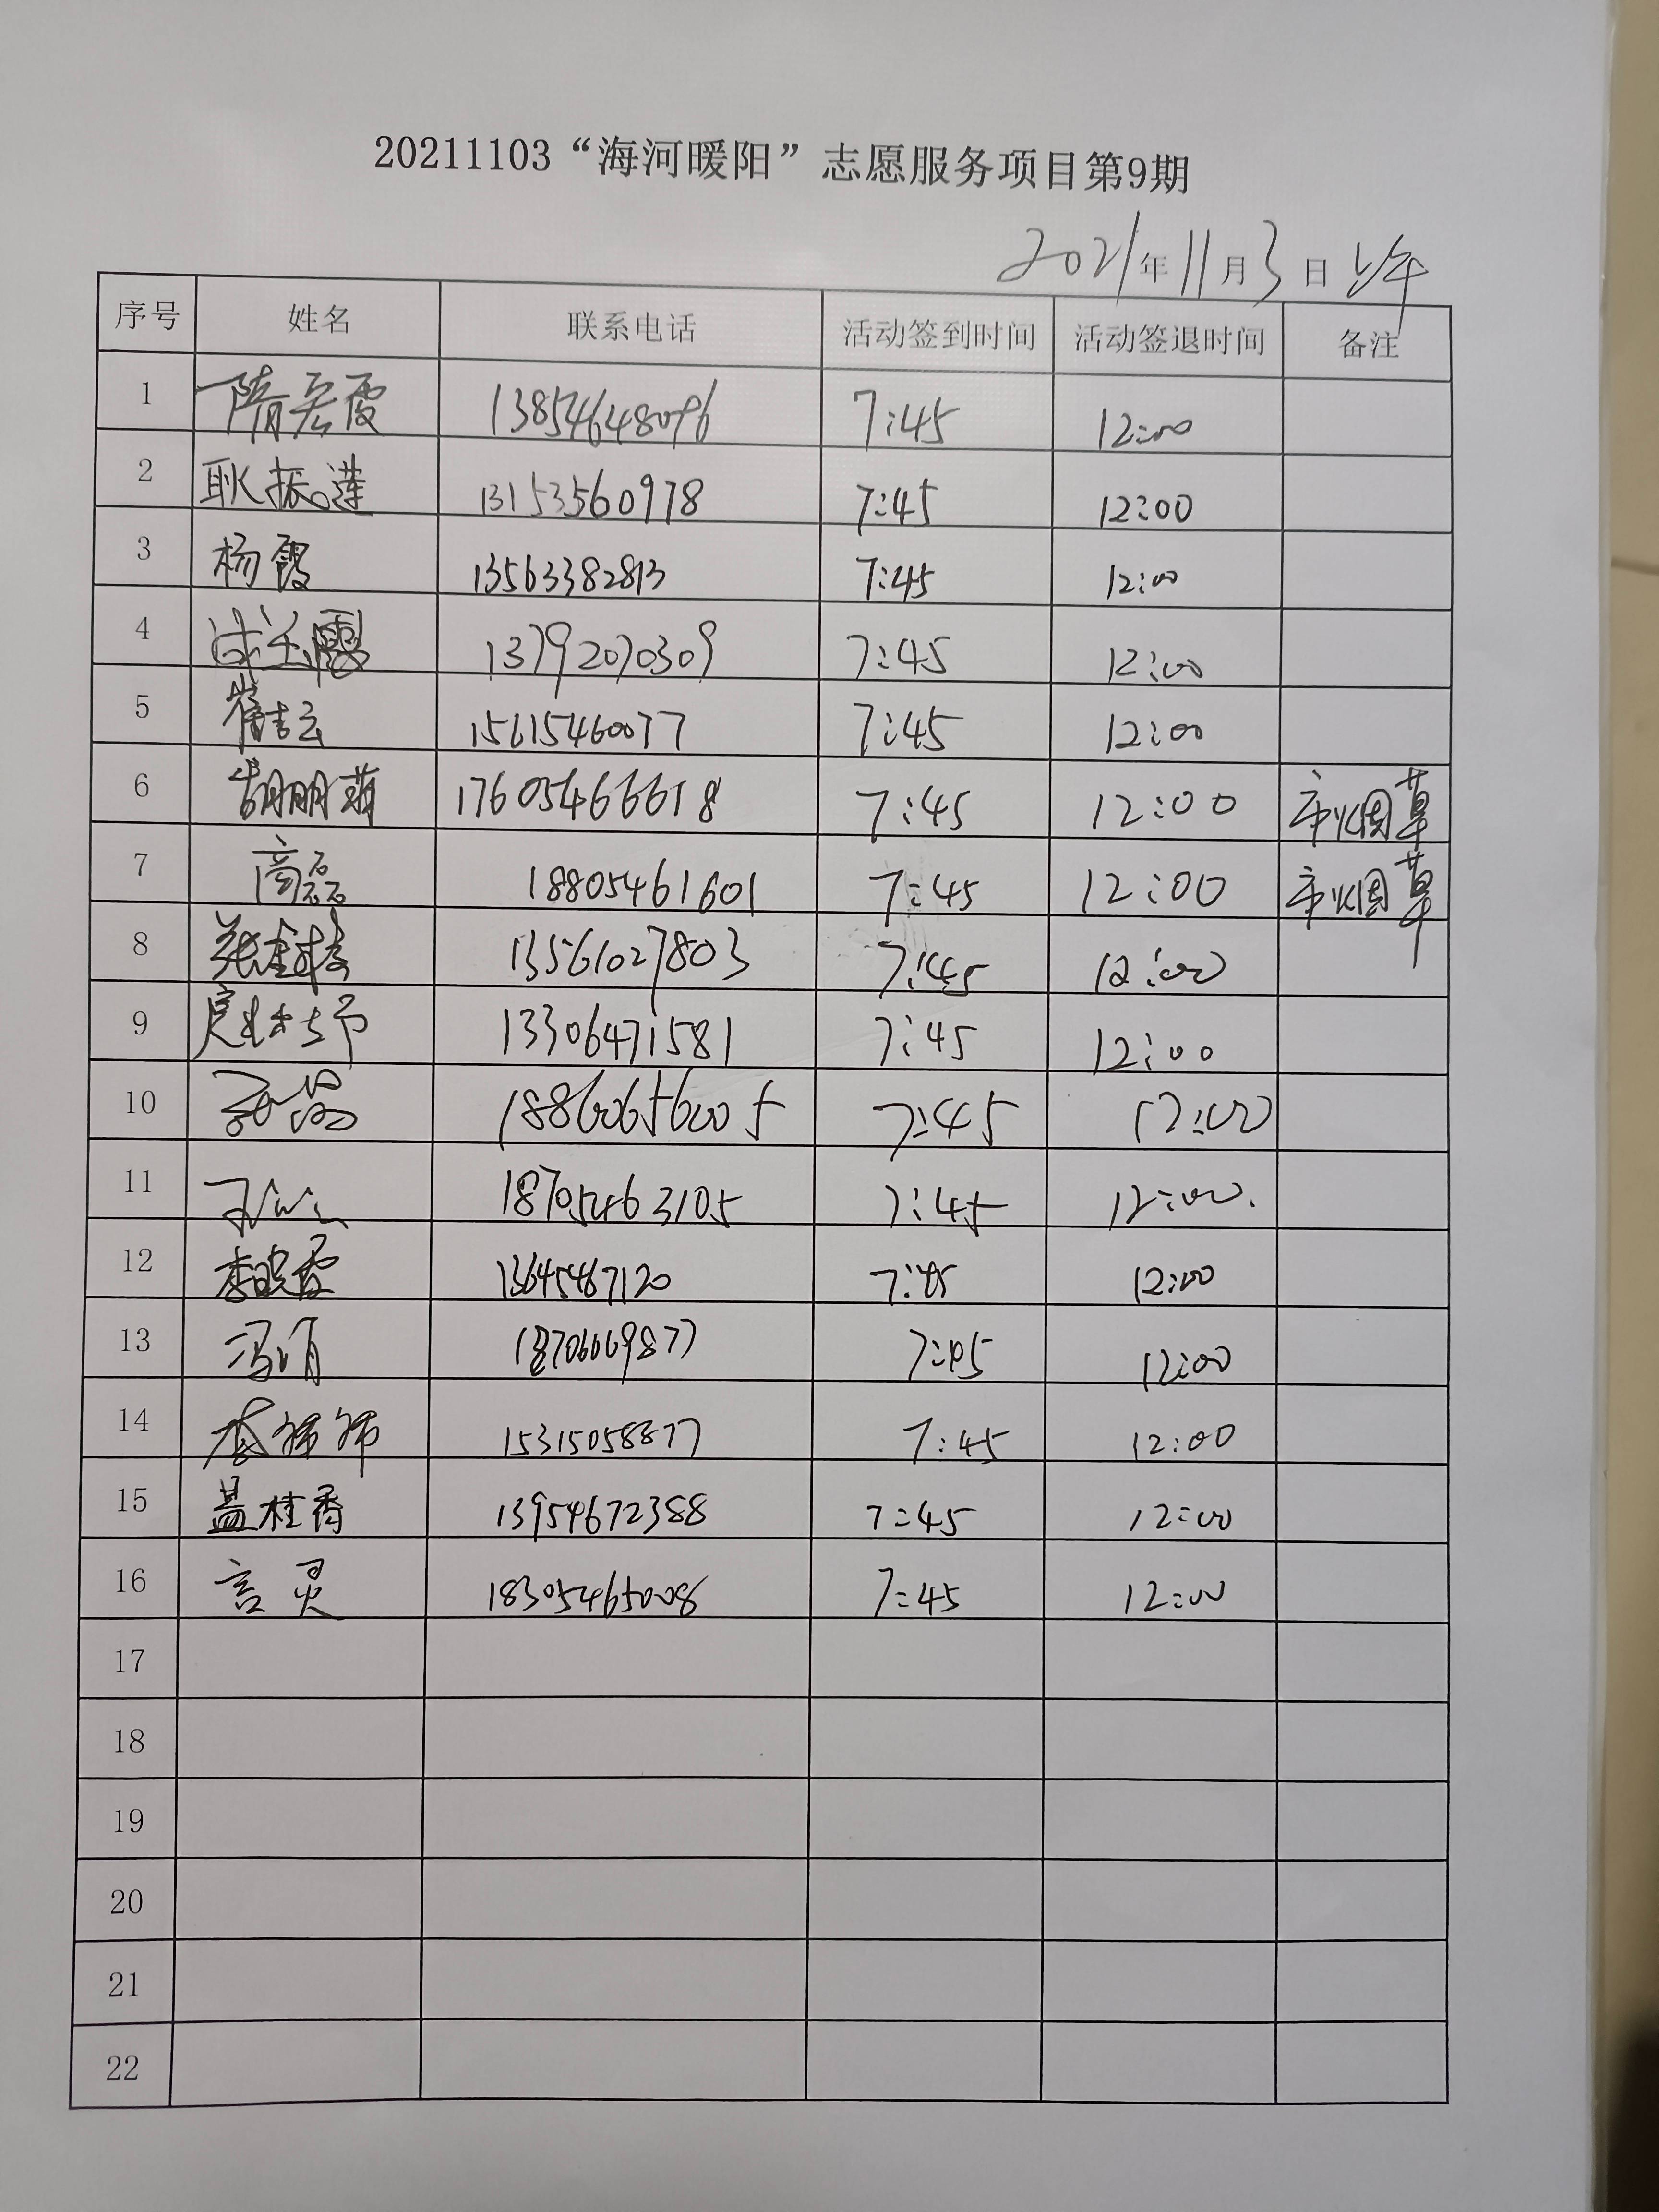 20211103“海河暖阳”志愿服务项目第9期
2021年11月3日 上午
序号 姓名 联系电话 活动签到时间 活动签退时间 备注
1 隋宏霞 13854648096 7:45 12:00
2 耿振莲 13153560978 7:45 12:00
3 杨霞 13563382813 7:45 12:00
4 13792070309 7:45 12:00
5 崔吉云 15615460077 7:45 12:00
6 胡朋菲 17605466618 7:45 12:00 市烟草
7 高磊 18805461601 7:45 12:00 市烟草
8 13561027803 7:45 12:00
9 13306471581 7:45 12:00
10 18860656005 7:45 12:00
11 18705463105 7:45 12:00
12 李晓霞 13645467120 7:45 12:00
13 冯娟 18706669877 7:45 12:00
14 15315058877 7:45 12:00
15 盖桂香 13954672388 7:45 12:00
16 言灵 18305465008 7:45 12:00
17
18
19
20
21
22